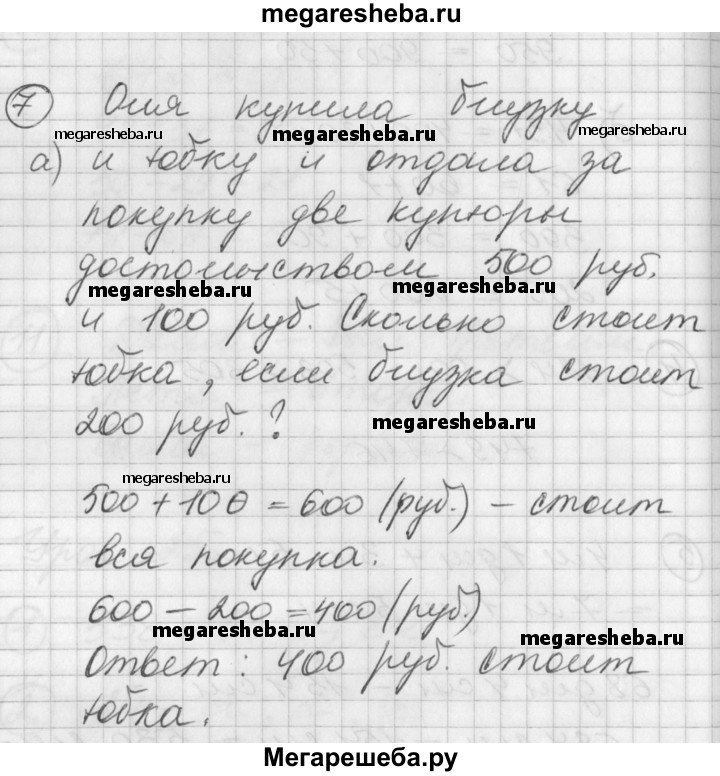 megaresheba.ru
7 Оля купила блузку
megaresheba.ru megaresheba.ru megaresheba.ru
а) и юбку и отдала за
покупку две купюры
достоинством 500 руб.
megaresheba.ru megaresheba.ru
и 100 руб. Сколько стоит
юбка, если блузка стоит
200 руб.?
megaresheba.ru
megaresheba.ru
500 + 100 = 600 (руб.) – стоит
вся покупка.
600 – 200 = 400 (руб.)
megaresheba.ru megaresheba.ru
Ответ: 400 руб. стоит
юбка.
Мегарешеба.ру